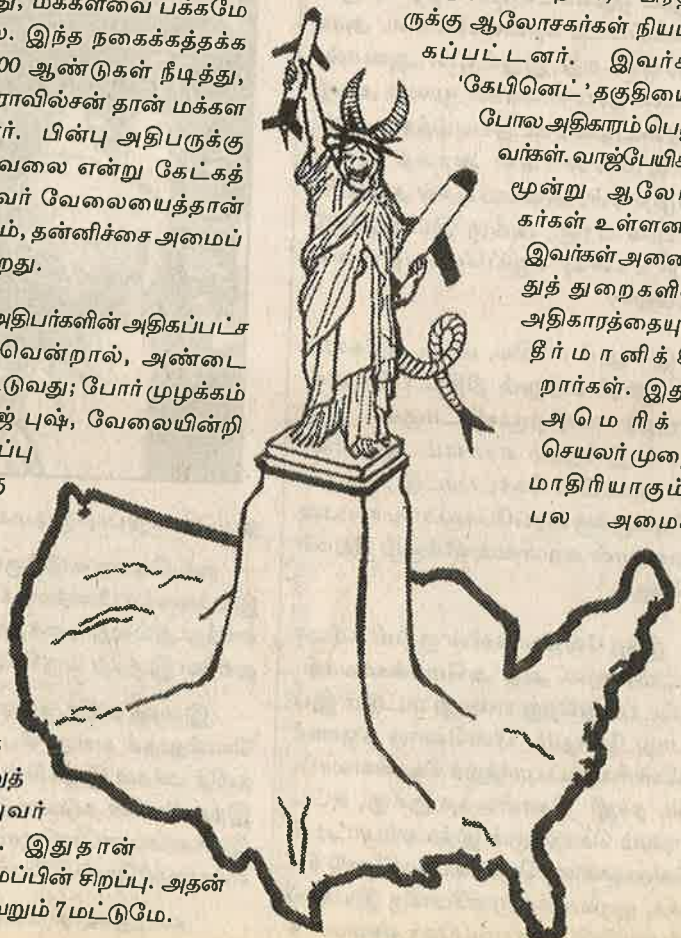 து, மக்களவை பக்கமே
இந்த நகைக்கத்தக்க
00 ஆண்டுகள் நீடித்து,
ராவில்சன் தான் மக்கள
ர். பின்பு அதிபருக்கு
வேலை என்று கேட்கத்
வர் வேலையைத்தான்
ம், தன்னிச்சை அமைப்
றது.
அதிபர்களின் அதிகப்பட்ச
வென்றால், அண்டை
டுவது; போர் முழக்கம்
ஜ் புஷ், வேலையின்றி
ப்பு
வுத்
வர்
. இதுதான்
மைப்பின் சிறப்பு. அதன்
வறும் 7 மட்டுமே.
ருக்கு ஆலோசகர்கள் நியம
கப்பட்டனர். இவர்க
'கேபினெட்' தகுதியை
போல அதிகாரம் பெற
வர்கள். வாஜ்பேயிக
மூன்று ஆலோ
கர்கள் உள்ளன
இவர்கள் அனை
துத் துறைகளி
அதிகாரத்தையு
தீர்மானிக்
றார்கள். இது
அமெரிக்
செயலர் முறை
மாதிரியாகும்
பல அமை